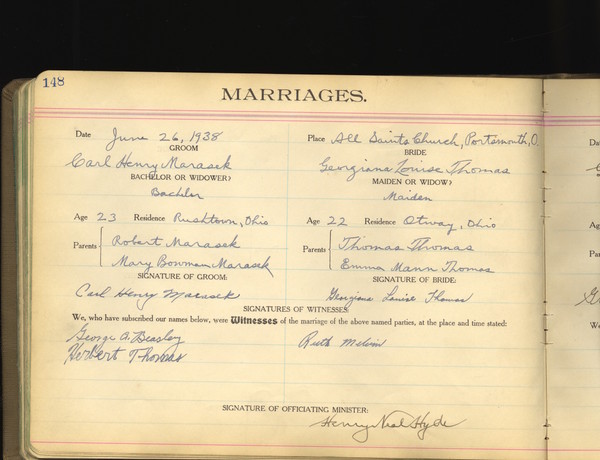 148
MARRIAGES.
Date June 26, 1938 Place All Saints Church, Portsmouth, O.
GROOM BRIDE
Carl Henry Marasek Georgiana Louise Thomas
BACHELOR OR WIDOWER? MAIDEN OR WIDOW?
Bachelor Maiden
Age 23 Residence Rushtown, Ohio Age 22 Residence Otway, Ohio
Parents Robert Marasek Parents Thomas Thomas
Mary Bowman Marasek Emma Mann Thomas
SIGNATURE OF GROOM: SIGNATURE OF BRIDE:
Carl Henry Marasek Georgiana Louise Thomas
SIGNATURES OF WITNESSES:
We, who have subscribed our names below, were Witnesses of the marriage of the above named parties, at the place and time stated:
George A. Beasley Ruth Melvin
Herbert Thomas
SIGNATURE OF OFFICIATING MINISTER:
Henry Neal Hyde